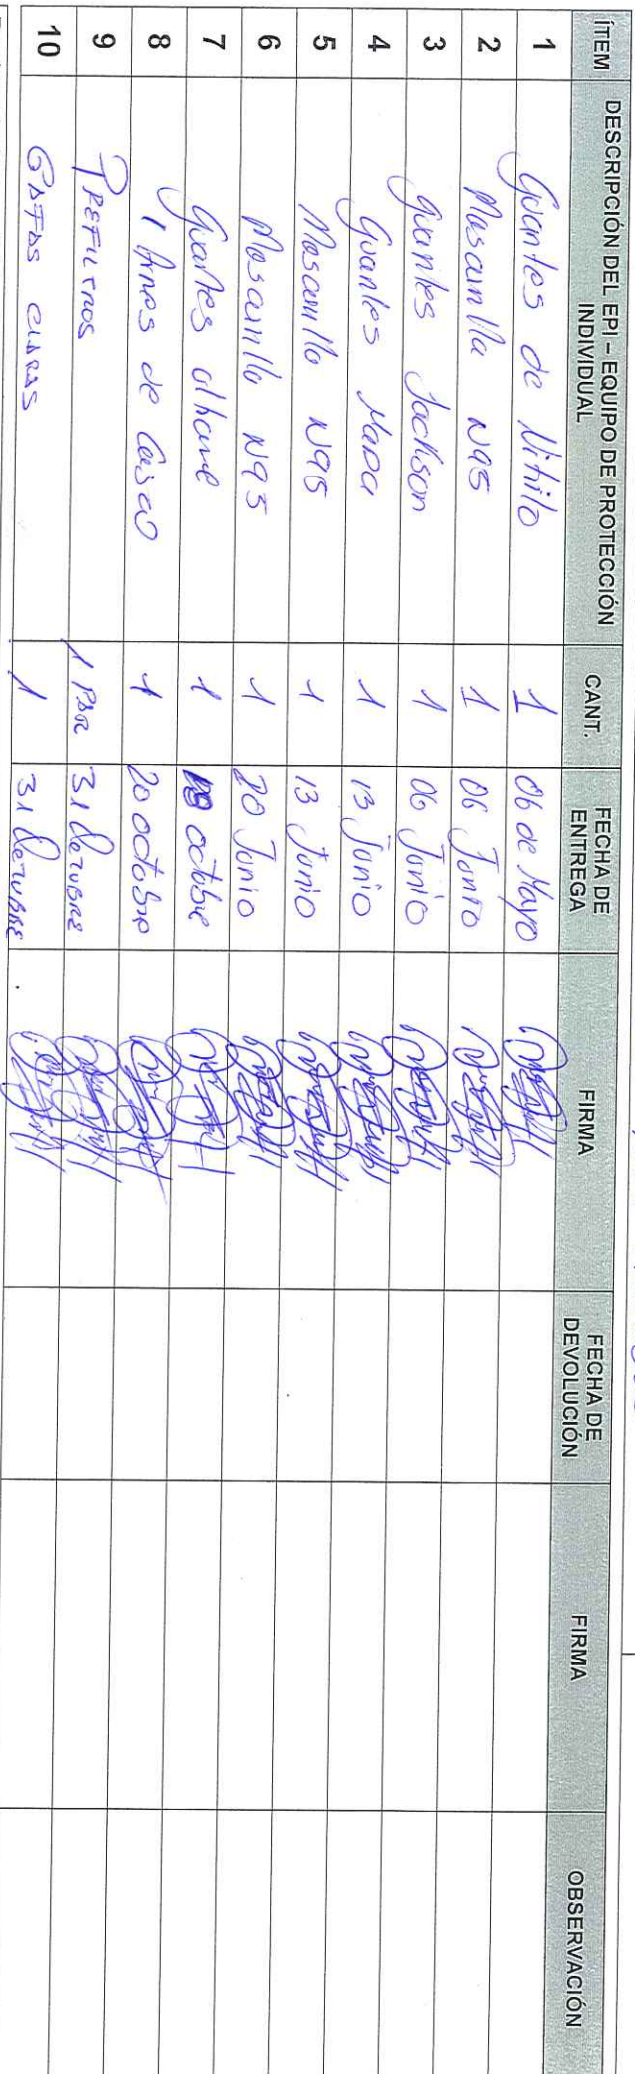 ÍTEM DESCRIPCIÓN DEL EPI – EQUIPO DE PROTECCIÓN INDIVIDUAL CANT. FECHA DE ENTREGA FIRMA FECHA DE DEVOLUCIÓN FIRMA OBSERVACIÓN
1 Guantes de Nitrilo 1 06 de Mayo
2 Mascarilla N95 1 06 Junio
3 Guantes Jackson 1 06 Junio
4 Guantes Mapa 1 13 Junio
5 Mascarilla N95 1 13 Junio
6 Mascarilla N95 1 20 Junio
7 Guantes 1 octubre
8 1 Arnes de Casco 1 20 octubre
9 PREFILTROS 1 PAR 31 OCTUBRE
10 GAFAS CLARAS 1 31 OCTUBRE